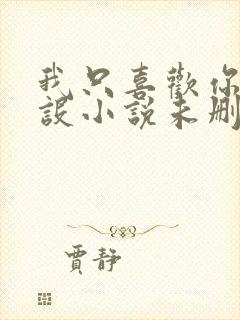 我只喜歡你
設小說未刪
賈靜